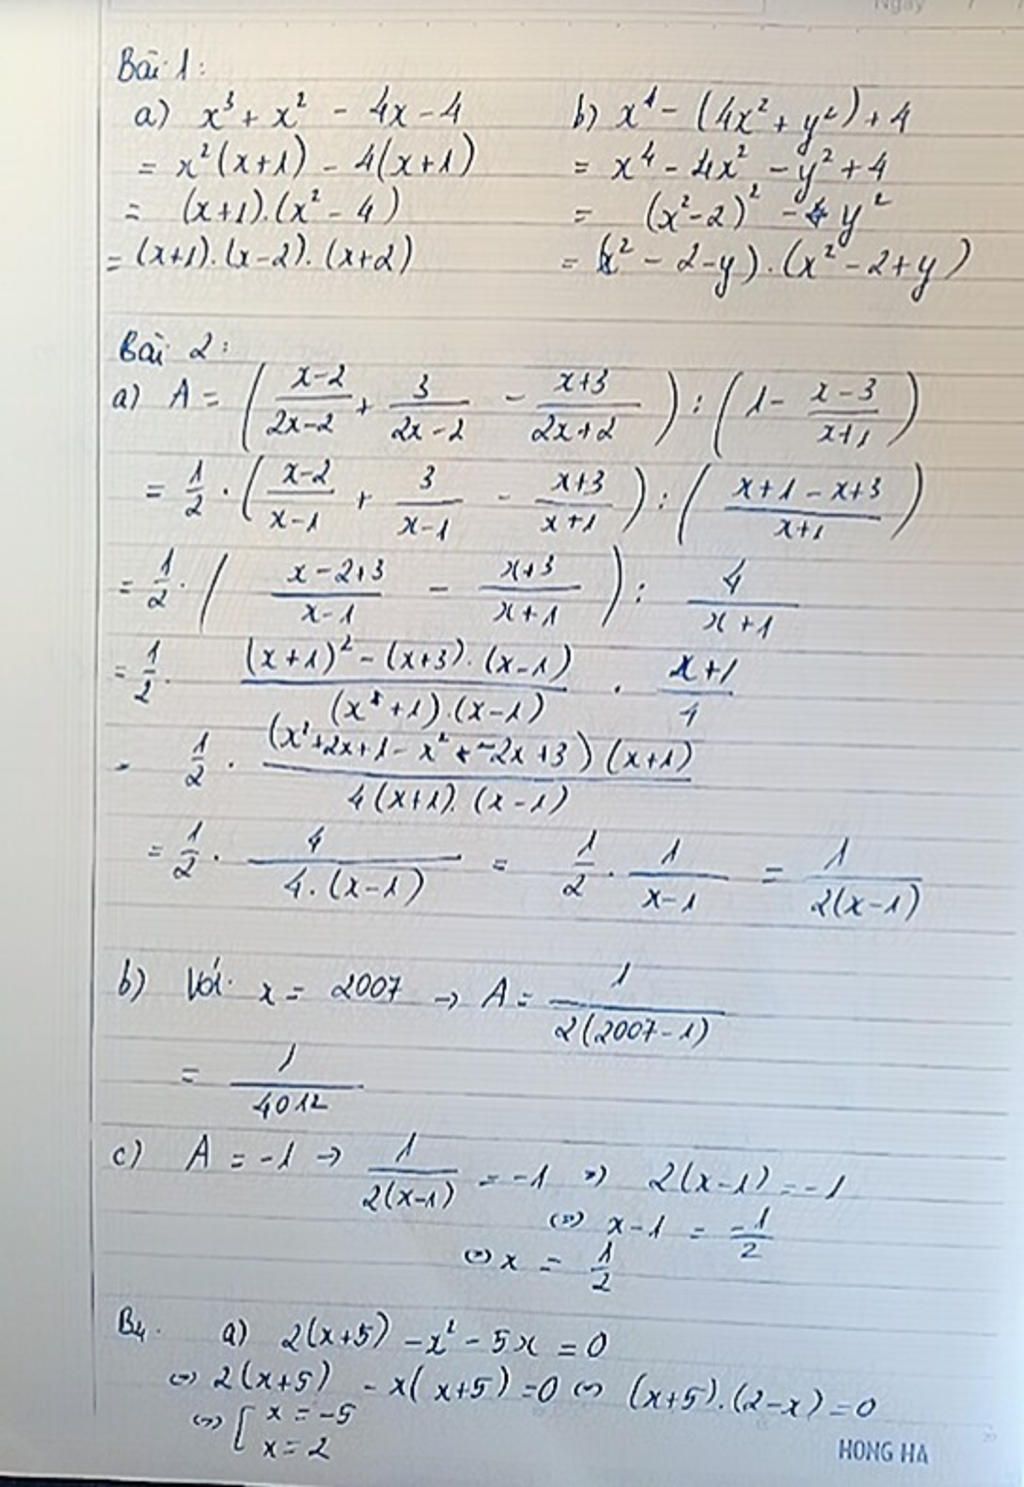 Ngày
Bài 1:
a) x³ + x² - 4x - 4
= x²(x+1) - 4(x+1)
= (x+1).(x² - 4)
= (x+1).(x-2).(x+2)
b) x⁴ - (4x² + y²) + 4
= x⁴ - 4x² - y² + 4
= (x²-2)² - y²
= (x² - 2 - y).(x² - 2 + y)
Bài 2:
a) A = ( (x-2)/(2x-2) + 3/(2x-2) - (x+3)/(2x+2) ) : ( 1 - (x-3)/(x+1) )
= 1/2 . ( (x-2)/(x-1) + 3/(x-1) - (x+3)/(x+1) ) : ( (x+1-x+3)/(x+1) )
= 1/2 . ( (x-2+3)/(x-1) - (x+3)/(x+1) ) : 4/(x+1)
= 1/2 . ((x+1)² - (x+3).(x-1))/((x+1).(x-1)) . (x+1)/4
= 1/2 . ((x²+2x+1 - x² - 2x + 3)(x+1))/(4(x+1).(x-1))
= 1/2 . 4/(4.(x-1)) = 1/2 . 1/(x-1) = 1/(2(x-1))
b) Với x = 2007 → A = 1/(2(2007-1))
= 1/4012
c) A = -1 → 1/(2(x-1)) = -1 => 2(x-1) = -1
<=> x-1 = -1/2
<=> x = 1/2
B4. a) 2(x+5) - x² - 5x = 0
<=> 2(x+5) - x(x+5) = 0 <=> (x+5).(2-x) = 0
<=> [ x = -5
x = 2
HONG HA